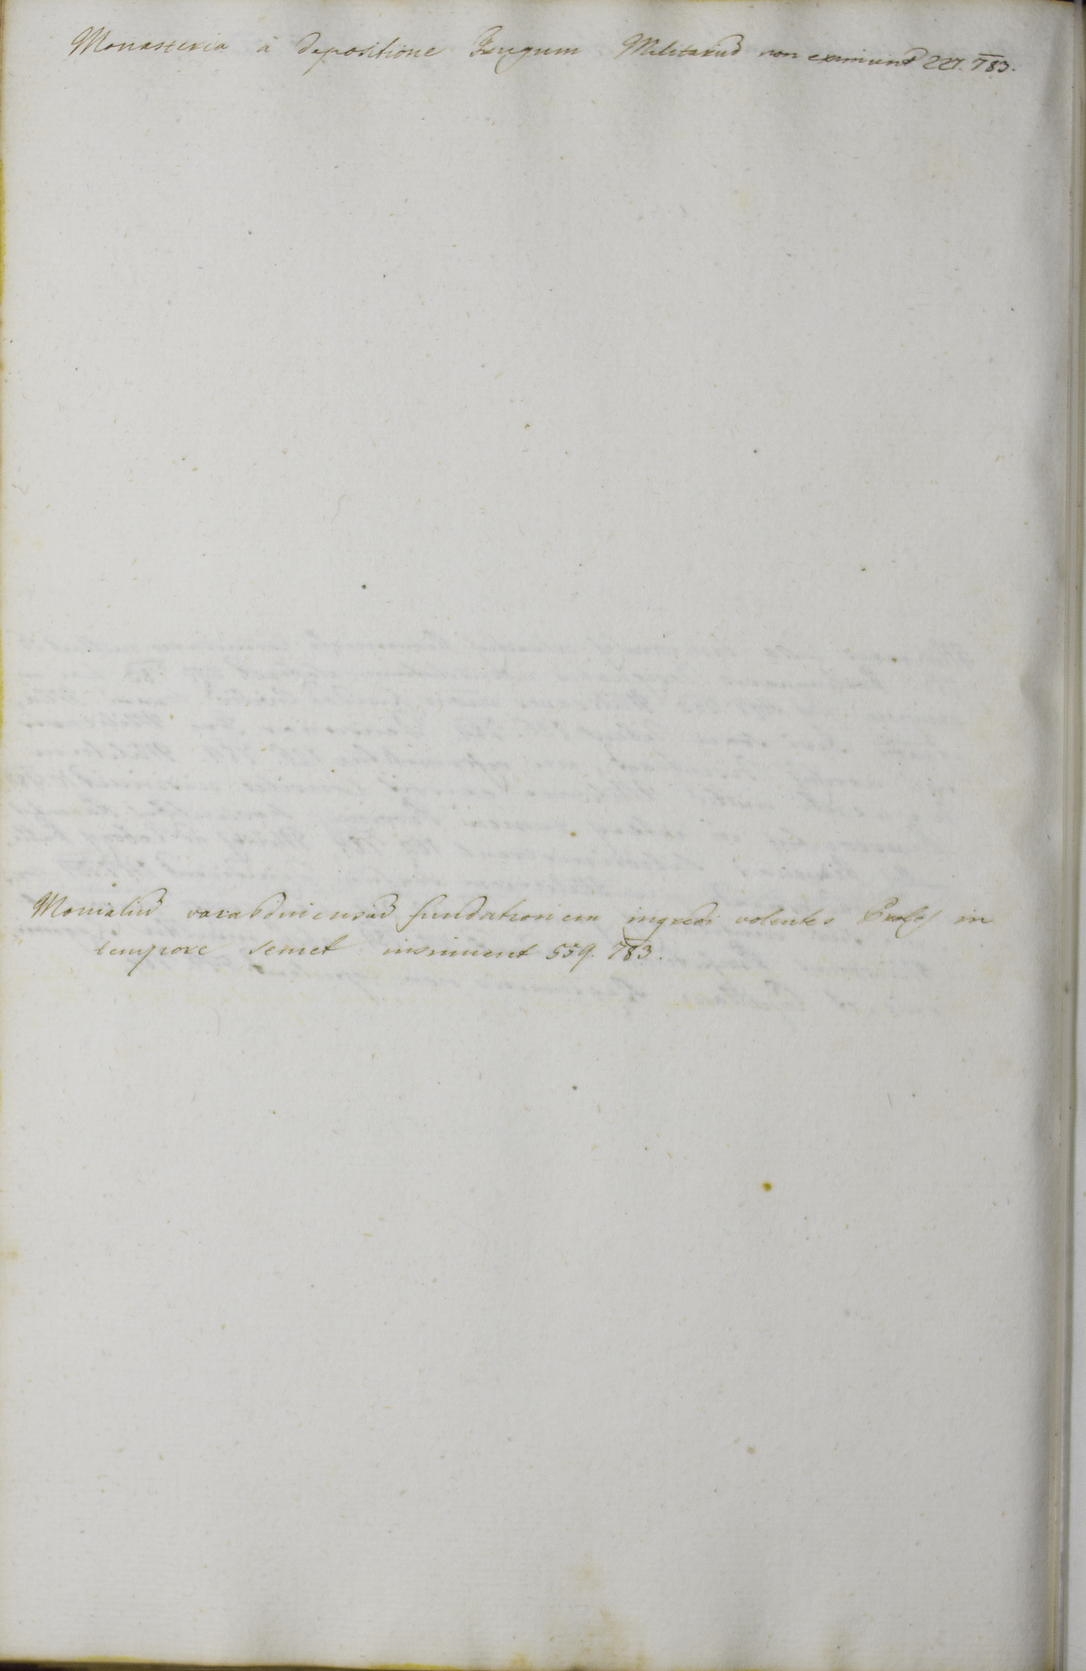 Monasteria a depositione Frugum Militariũ non eximunt 227. 783.
Monialiũ varasdiniensiũ fundationem ingredi volentes in
tempore semet insinuent 559. 783.